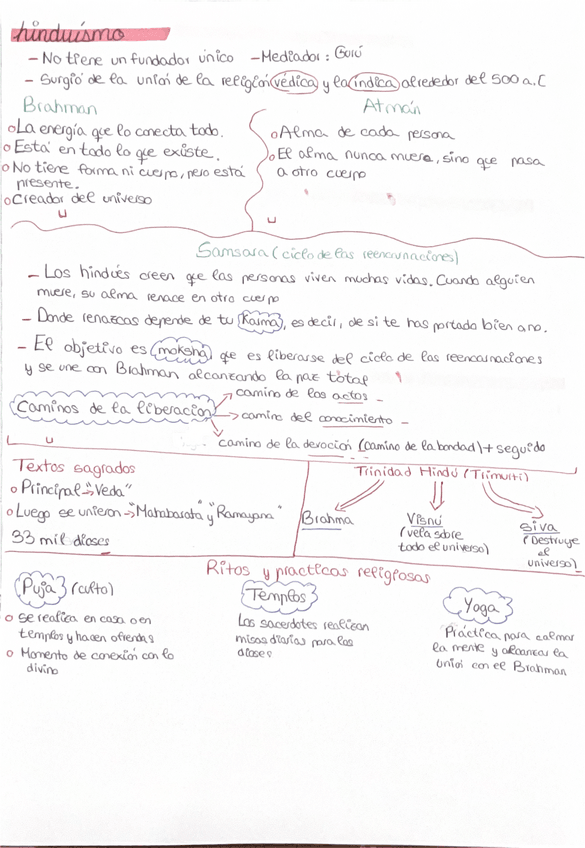 hinduísmo
- No tiene un fundador único - Mediador: Gurú
- Surgió de la unión de la religión védica y la índica alrededor del 500 a.C
Brahman
o La energía que lo conecta todo.
o Está en todo lo que existe.
o No tiene forma ni cuerpo, pero está
presente.
o Creador del universo
Atmán
o Alma de cada persona
o El alma nunca muere, sino que pasa
a otro cuerpo
Samsara (ciclo de las reencarnaciones)
- Los hindúes creen que las personas viven muchas vidas. Cuando alguien
muere, su alma renace en otro cuerpo
- Donde renazcas depende de tu Karma, es decir, de si te has portado bien a no.
- El objetivo es moksha que es liberarse del ciclo de las reencarnaciones
y se une con Brahman alcanzando la paz total
Caminos de la liberacion
→ camino de los actos -
→ camino del conocimiento -
→ camino de la devocion (camino de la bondad) + seguido
Textos sagrados
o Principal → "Veda"
o Luego se unieron → "Mahabarata" y "Ramayana"
33 mil dioses
Trinidad Hindú (Trimurti)
Brahma
Visnú
(vela sobre
todo el universo)
Siva
(Destruye
el
universo)
Ritos y practicas religiosas
Puja (culto)
o se realiza en casa o en
templos y hacen ofrendas
o Momento de conexión con lo
divino
Templos
Los sacerdotes realizan
misas diarias para los
dioses
Yoga
Práctica para calmar
la mente y alcanzar la
unión con el Brahman